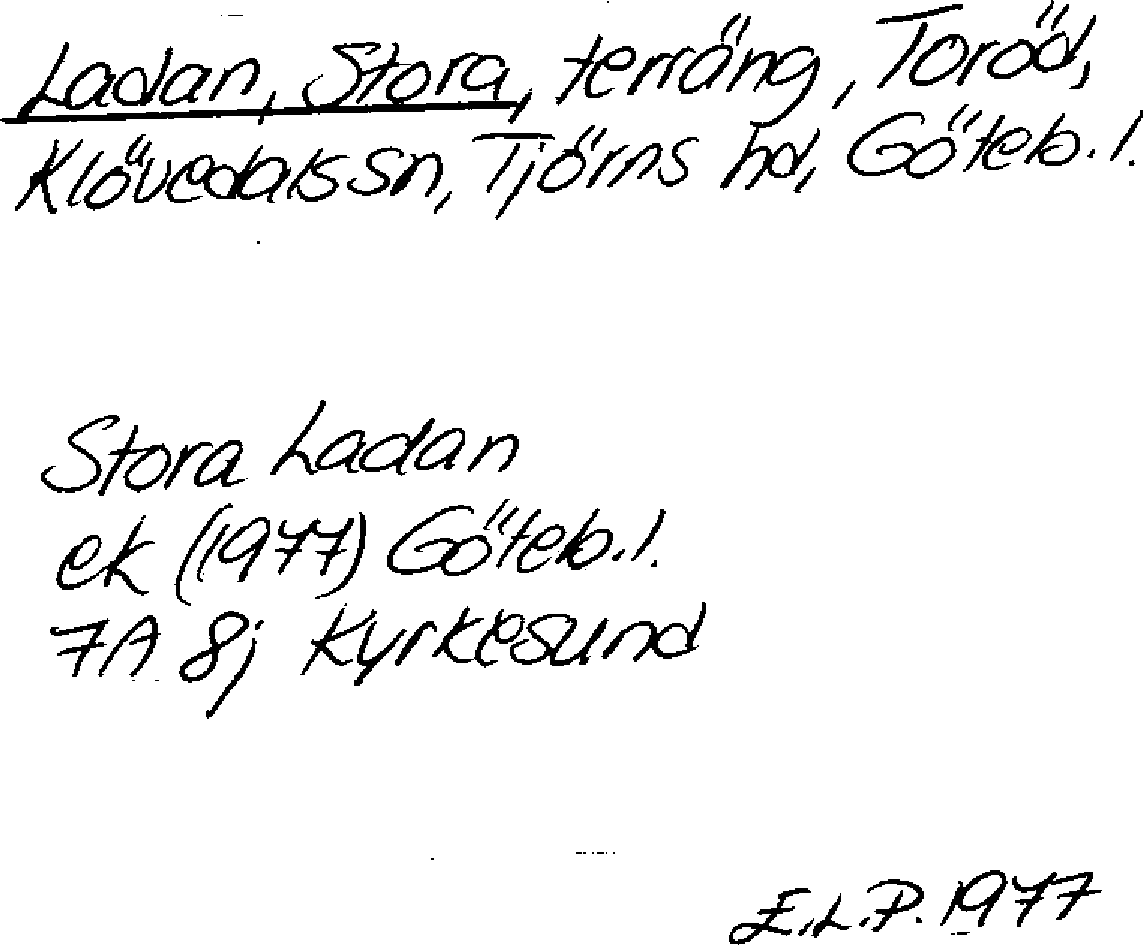 Ladan, Stora, terräng, Toröd,
Klövedals sn, Tjörns hd, Göteb. l.
Stora Ladan
ek (1977) Göteb. l.
7A 8j Kyrkesund
E.L.P. 1977